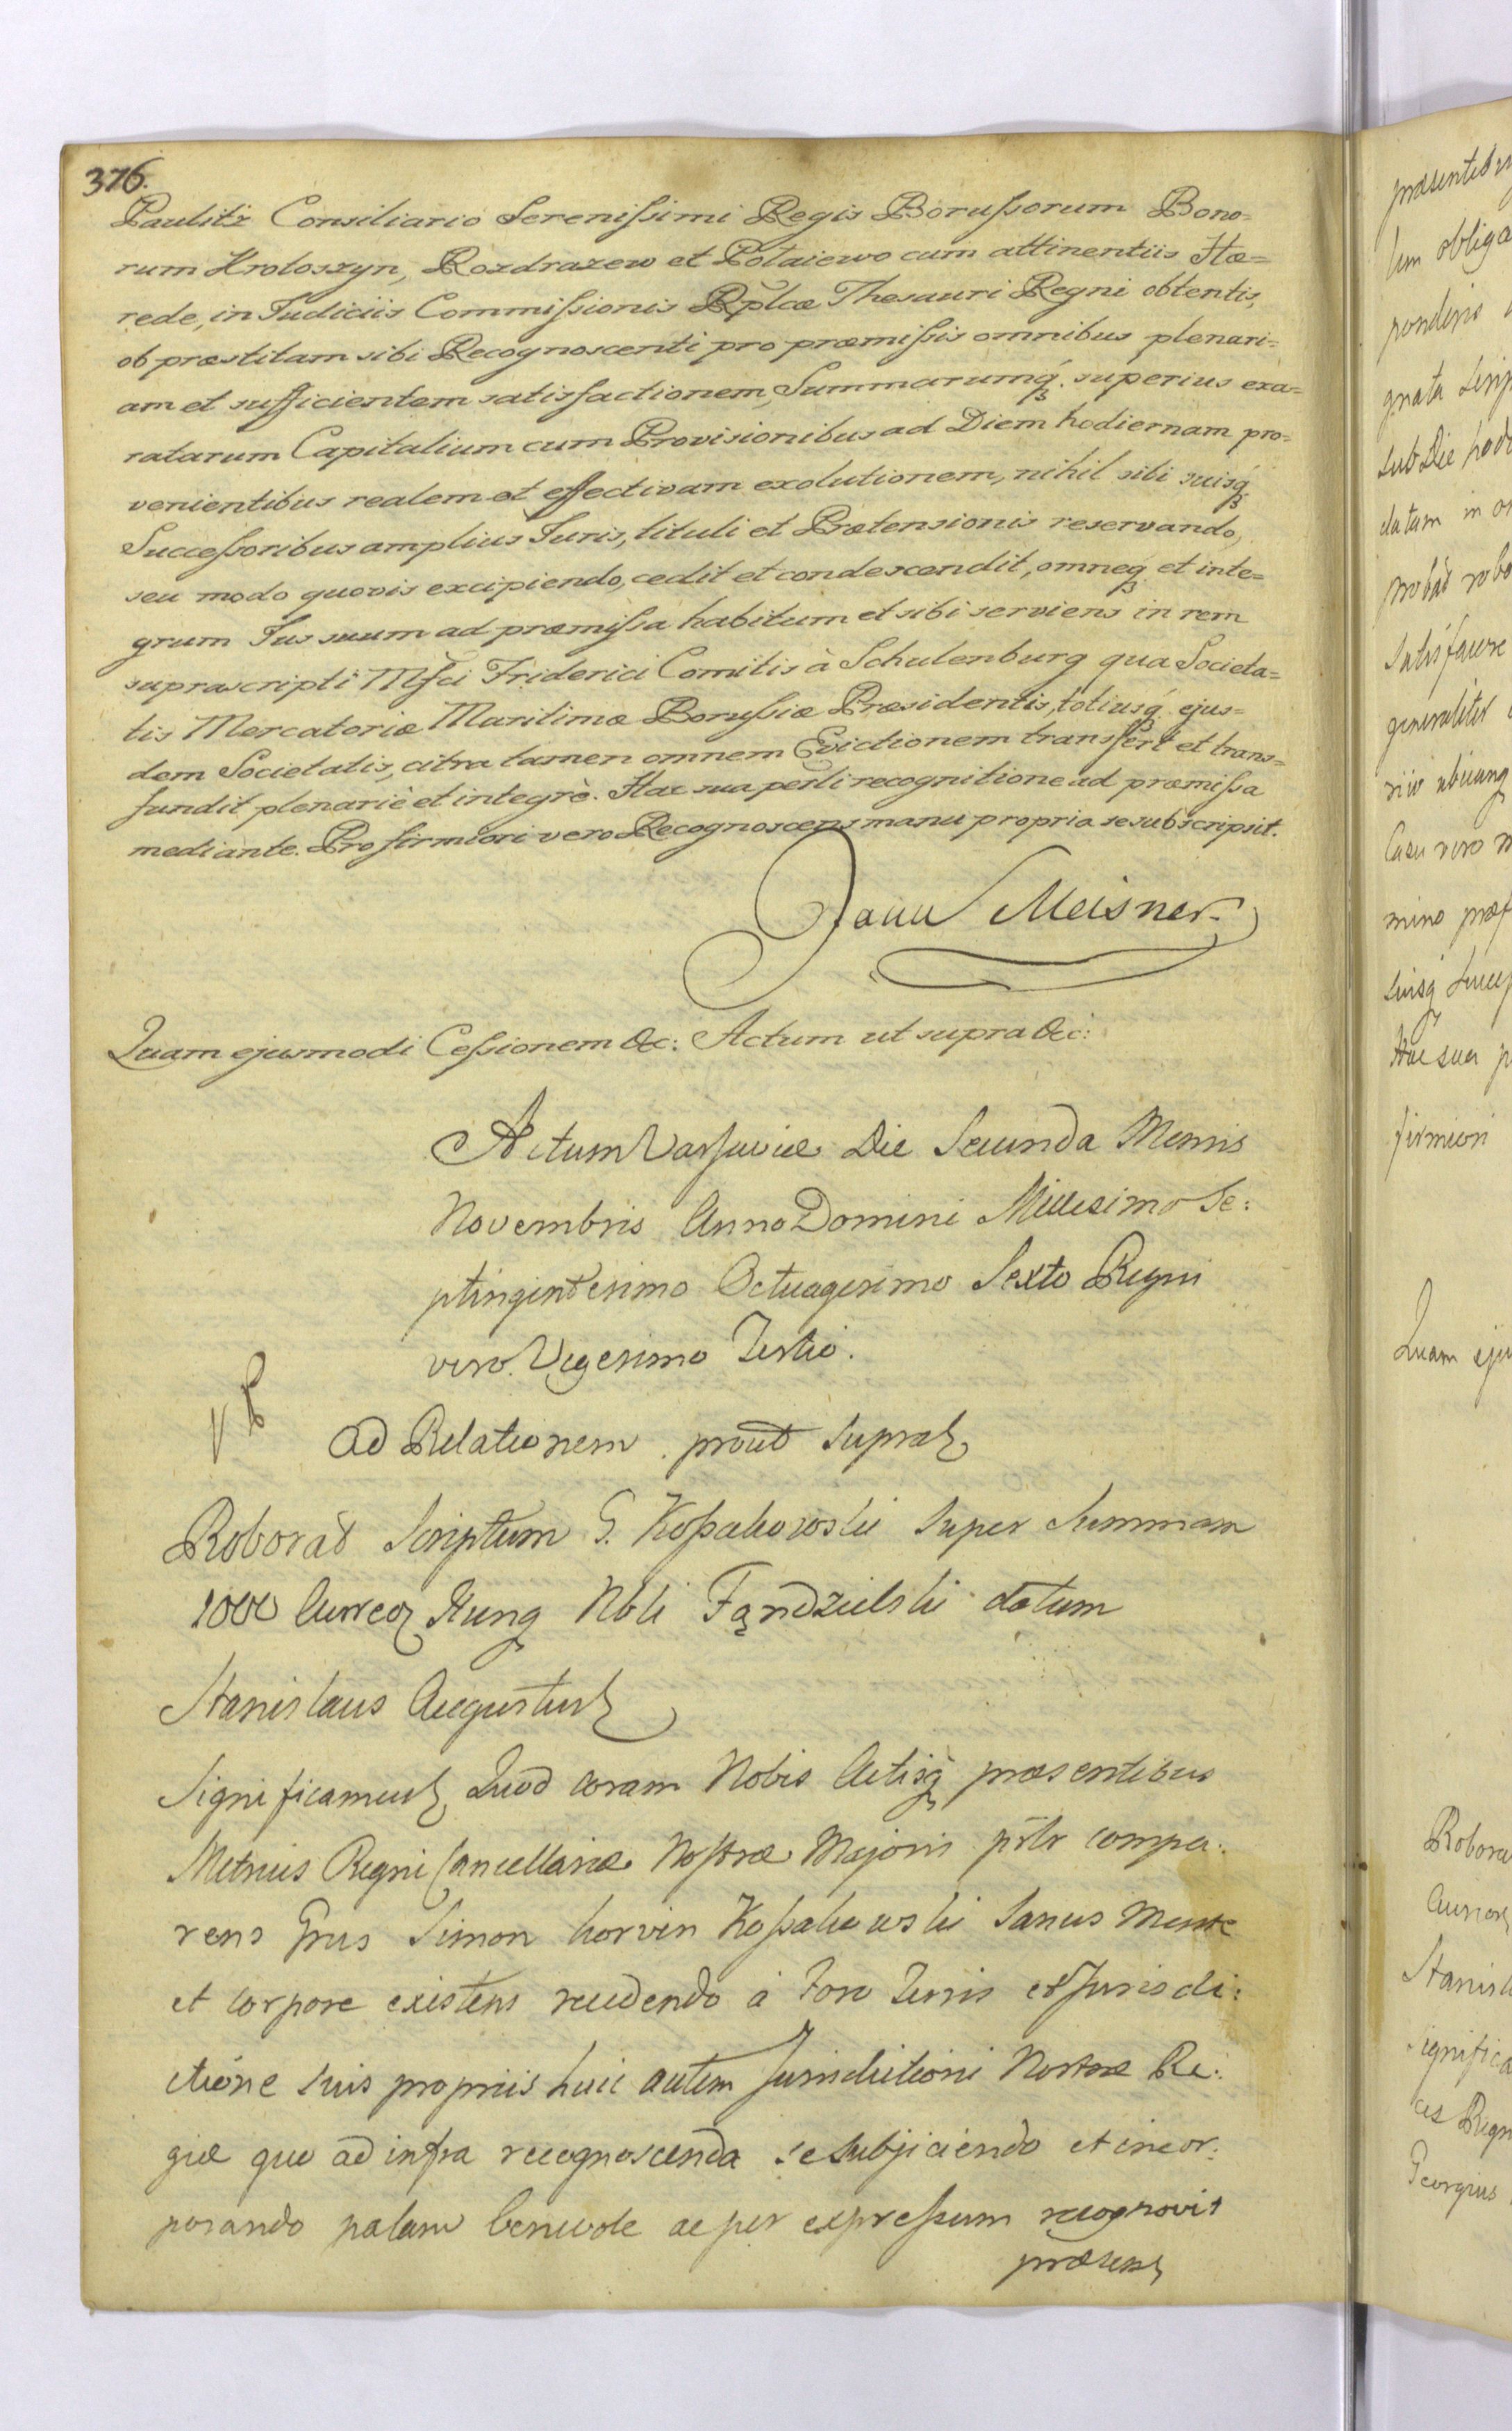 376.
Paulitz Consiliario Serenissimi Regis Borussorum Bono=
rum Kroloszyn, Rozdrazew et Potaiewo cum attinentiis Hæ=
rede, in Judiciis Commissionis Rplcæ Thesauri Regni obtentis,
ob præstitam sibi Recognoscenti pro præmissis omnibus plenari=
am et sufficientem satisfactionem, Summarumq́. superius exa=
ratarum Capitalium cum Provisionibus ad Diem hodiernam pro=
venientibus realem et effectivam exolutionem, nihil sibi suisq́
Successoribus amplius Juris, tituli et Prætensionis reservando,
seu modo quovis excipiendo, cedit et condescendit, omneq́ et inte=
grum Jus suum ad præmissa habitum et sibi serviens in rem
suprascripti Mfci Friderici Comitis à Schulenburg qua Societa=
tis Mercatoriæ Maritimæ Borussiæ Præsidentis, totiusq́. ejus=
dem Societatis, citra tamen omnem Evictionem transfert et trans=
fundit plenariè et integrè. Hac sua perlti recognitione ad præmissa
mediante. Pro firmiori vero Recognoscens manu propria se subscripsit.
Meisner.
Quam ejusmodi Cessionem &c: Actum ut supra &c:
Actum Varsaviæ Die Secunda Mensis
Novembris Anno Domini Millesimo Se:
ptingintesimo Octuagesimo Sexto Regni
vero. Vigesimo Tertio.
Ad Relationem prout supra
Roborat Scriptum G. Kossakowski super Summam
1000 Aureor Hung Nbli Fądzielski datum
Stanislaus Augustus
Significamus Quod coram Nobis Actisq́ præsentibus
Metrices Regni Cancellariæ Nostræ Majoris pslr compa:
rens Grus Simon Korvin Kossakowski sanus mente
et corpore existens recedendo à Foro Juris et Jurisdi:
ctione suis propriis huic autem Jurisdictioni Nostræ Re:
giæ quo ad infra recognoscenda se subjiciendo et incor:
porando palam benevole ac per expressum recognovit
præsens
præsentibus
obliga
ponderis
gnata
sub Die hod
datum in
robo
satisfacere
generaliter
Casu vero
mino præf
suisq́ Succes
Hac sua p
firmiori
Quam eju
Robora
Aureor
Stanisla
Significa
ces Regn
Georgius